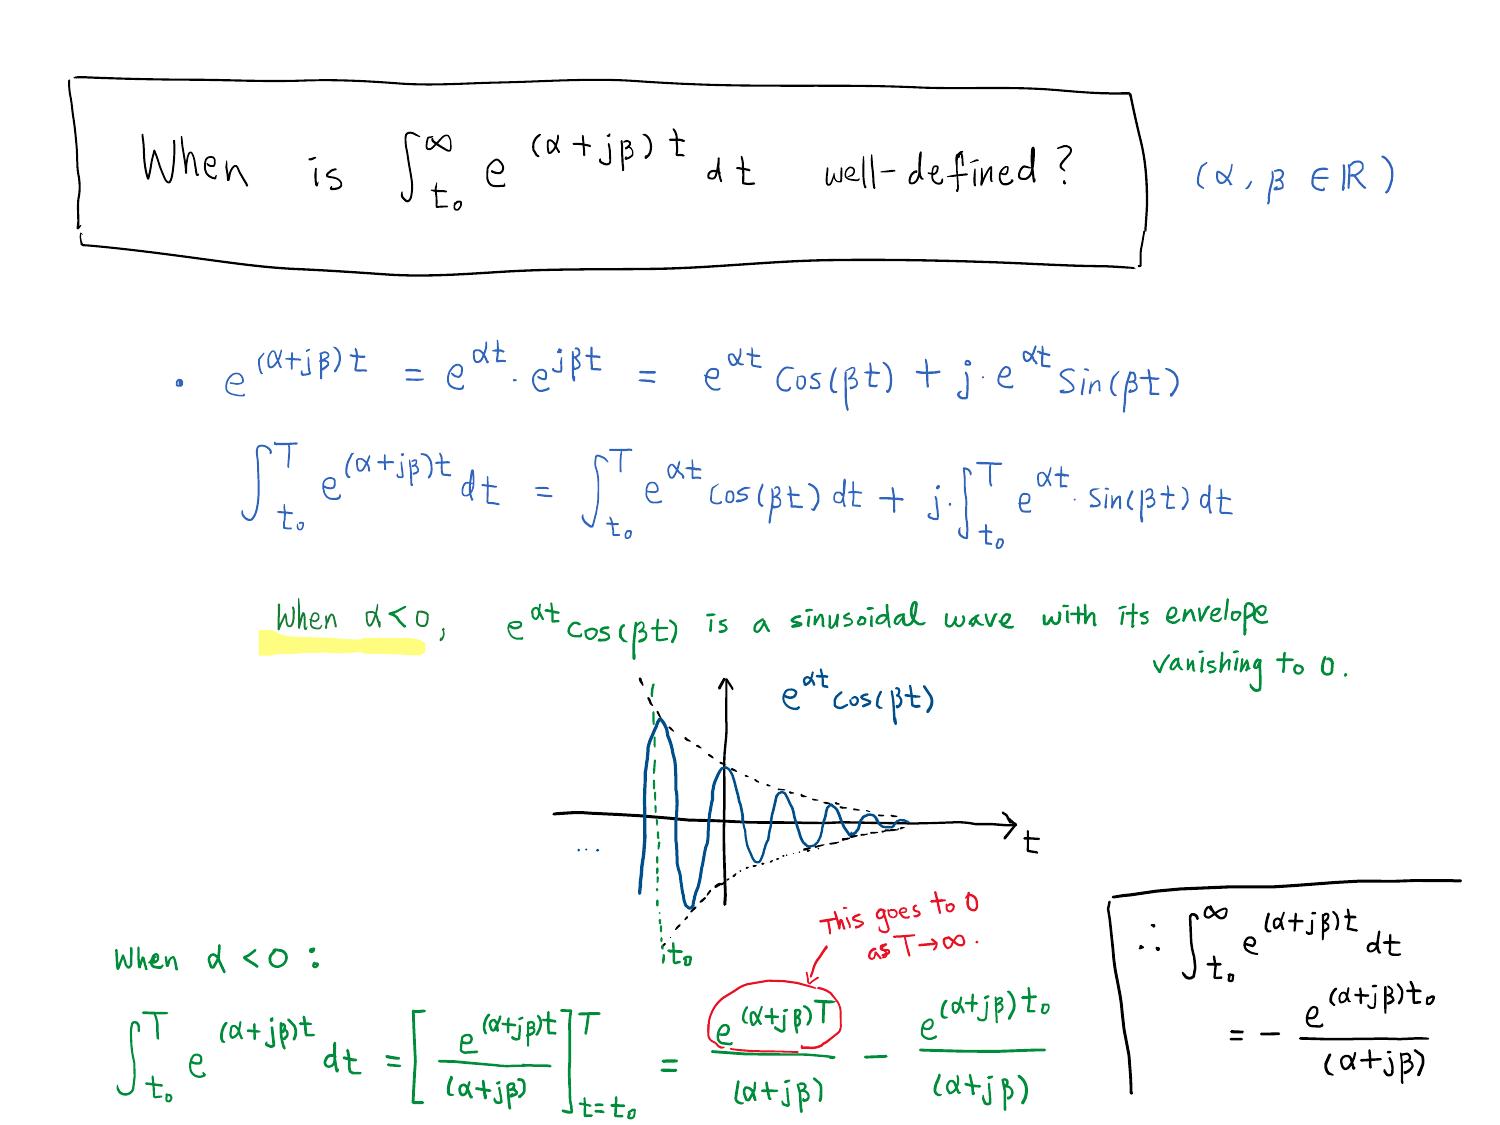 When is ∫_{t₀}^{∞} e^{(α+jβ)t} dt well-defined? (α, β ∈ ℝ)
• e^{(α+jβ)t} = e^{αt} · e^{jβt} = e^{αt} Cos(βt) + j · e^{αt} Sin(βt)
∫_{t₀}^{T} e^{(α+jβ)t} dt = ∫_{t₀}^{T} e^{αt} Cos(βt) dt + j · ∫_{t₀}^{T} e^{αt} · Sin(βt) dt
When α<0, e^{αt} Cos(βt) is a sinusoidal wave with its envelope
vanishing to 0.
e^{αt} Cos(βt)
...
t
t₀
This goes to 0
as T→∞.
When α<0 :
∫_{t₀}^{T} e^{(α+jβ)t} dt = [ e^{(α+jβ)t} / (α+jβ) ]_{t=t₀}^{T} = e^{(α+jβ)T} / (α+jβ) − e^{(α+jβ)t₀} / (α+jβ)
∴ ∫_{t₀}^{∞} e^{(α+jβ)t} dt
= − e^{(α+jβ)t₀} / (α+jβ)